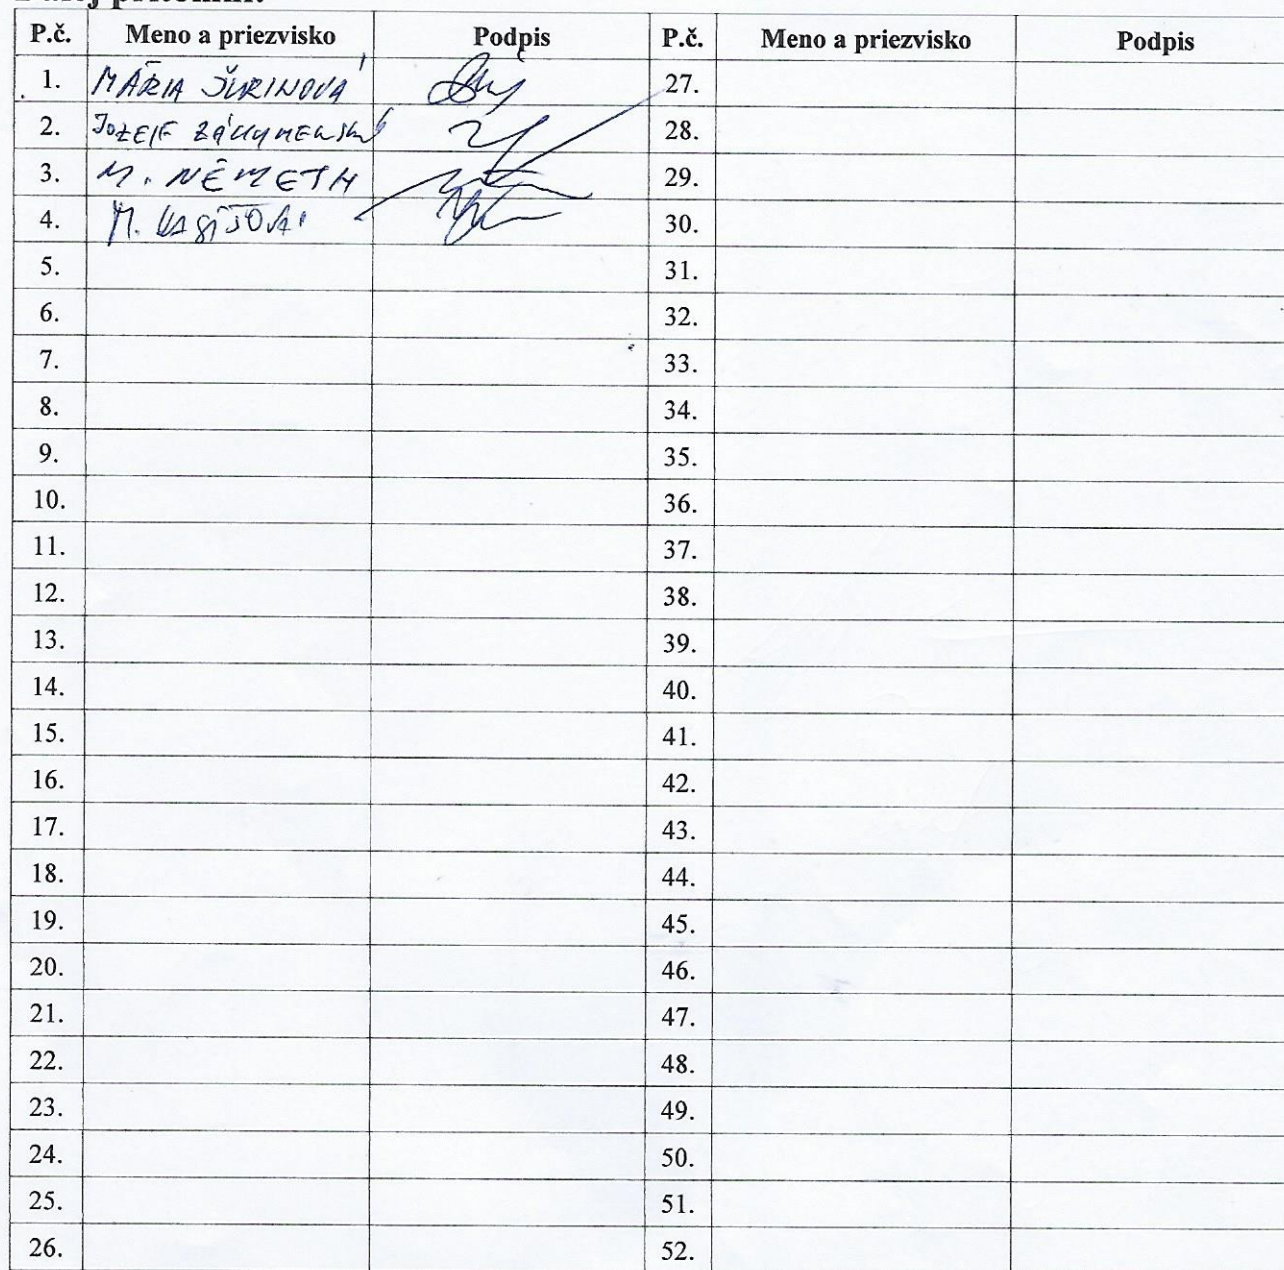 P.č. Meno a priezvisko Podpis P.č. Meno a priezvisko Podpis
1. MÁRIA ŠURINOVÁ 27.
2. JOZEF 28.
3. M. NÉMETH 29.
4. M. 30.
5. 31.
6. 32.
7. 33.
8. 34.
9. 35.
10. 36.
11. 37.
12. 38.
13. 39.
14. 40.
15. 41.
16. 42.
17. 43.
18. 44.
19. 45.
20. 46.
21. 47.
22. 48.
23. 49.
24. 50.
25. 51.
26. 52.